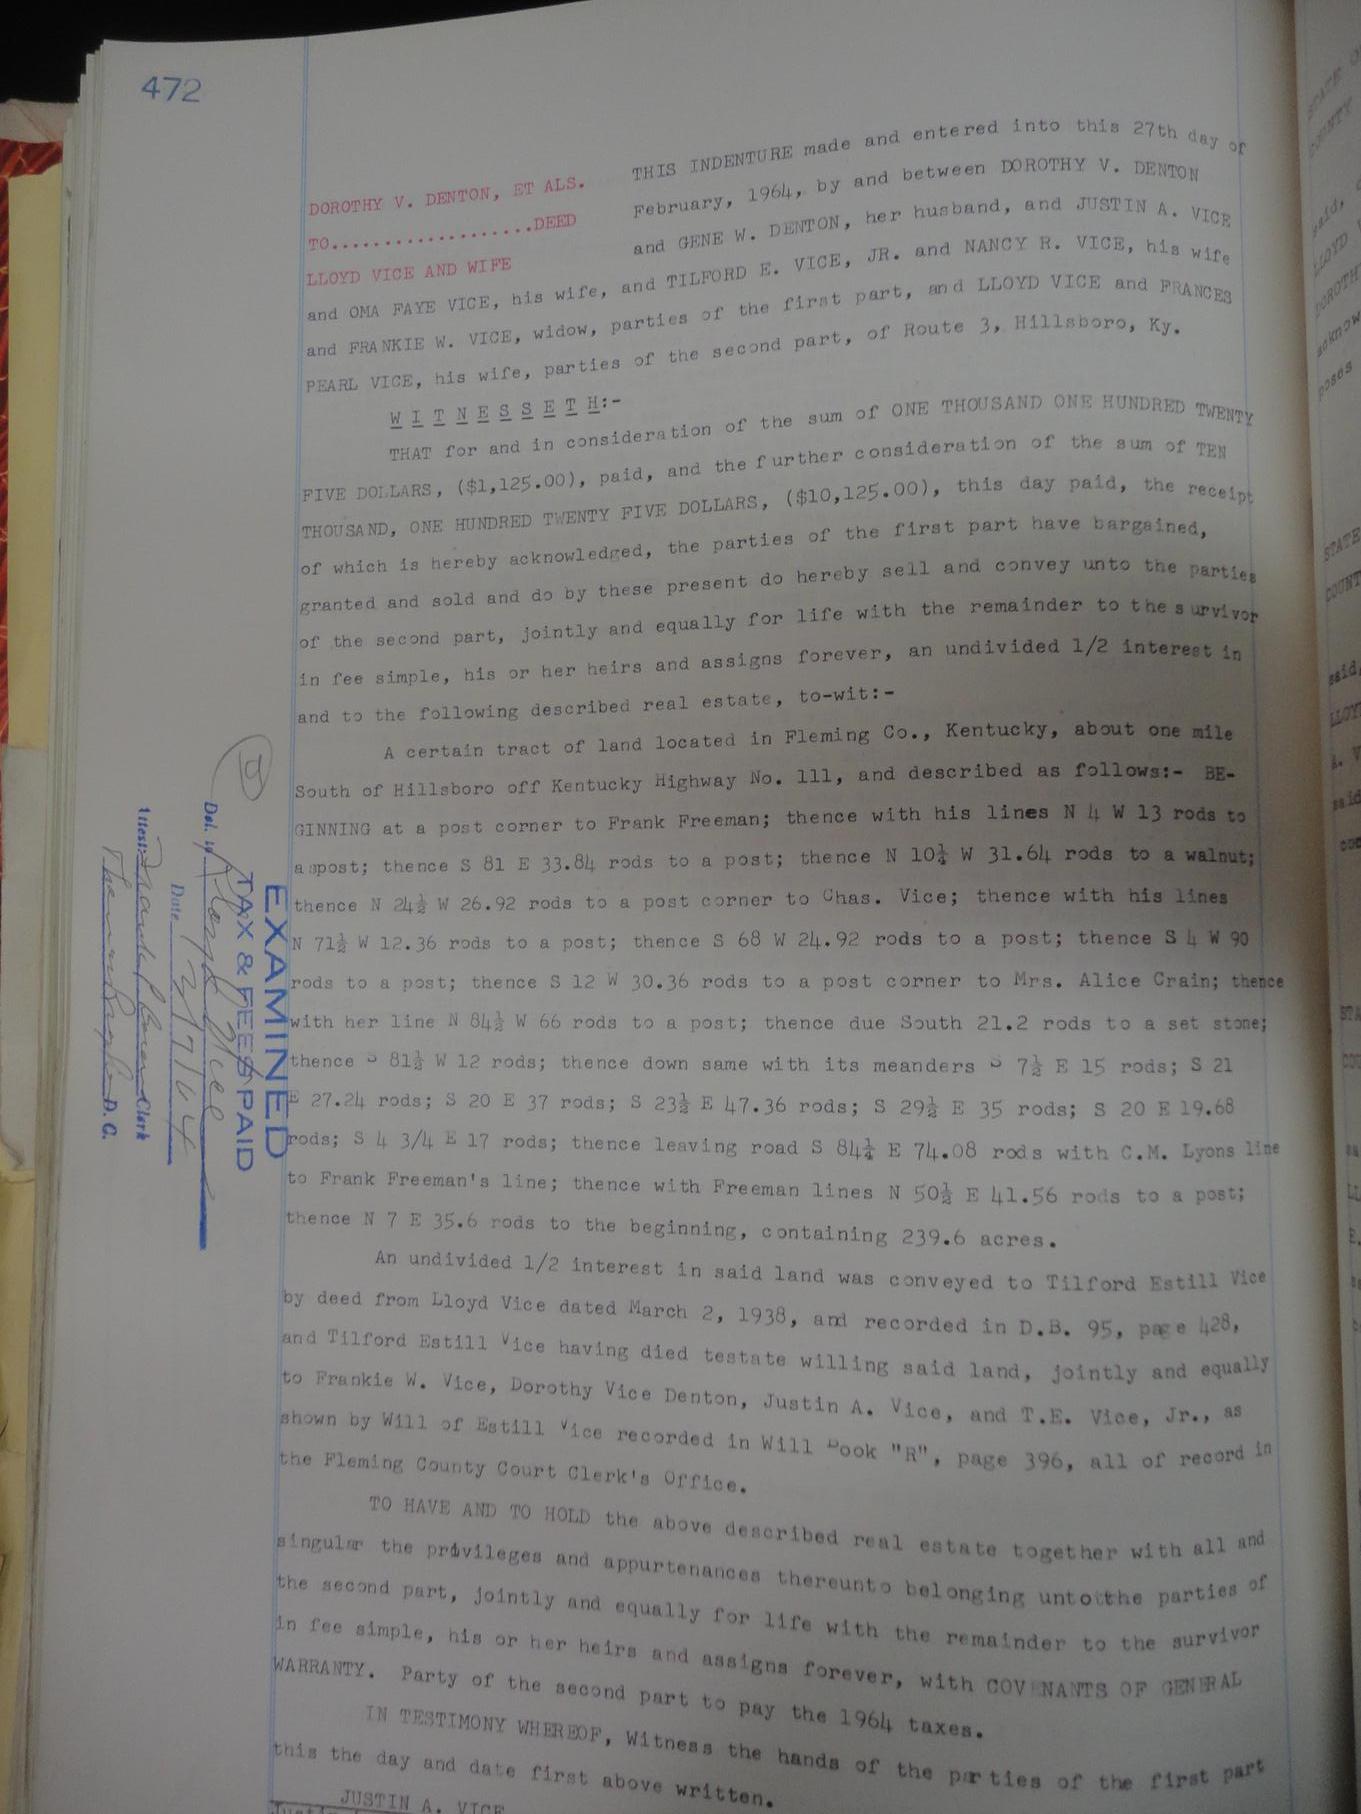 472
DOROTHY V. DENTON, ET ALS.
TO...................DEED
LLOYD VICE AND WIFE
THIS INDENTURE made and entered into this 27th day of
February, 1964, by and between DOROTHY V. DENTON
and GENE W. DENTON, her husband, and JUSTIN A. VICE
and OMA FAYE VICE, his wife, and TILFORD E. VICE, JR. and NANCY R. VICE, his wife
and FRANKIE W. VICE, widow, parties of the first part, and LLOYD VICE and FRANCES
PEARL VICE, his wife, parties of the second part, of Route 3, Hillsboro, Ky.
W I T N E S S E T H:-
THAT for and in consideration of the sum of ONE THOUSAND ONE HUNDRED TWENTY
FIVE DOLLARS, ($1,125.00), paid, and the further consideration of the sum of TEN
THOUSAND, ONE HUNDRED TWENTY FIVE DOLLARS, ($10,125.00), this day paid, the receipt
of which is hereby acknowledged, the parties of the first part have bargained,
granted and sold and do by these present do hereby sell and convey unto the parties
of the second part, jointly and equally for life with the remainder to the survivor
in fee simple, his or her heirs and assigns forever, an undivided 1/2 interest in
and to the following described real estate, to-wit:-
A certain tract of land located in Fleming Co., Kentucky, about one mile
South of Hillsboro off Kentucky Highway No. 111, and described as follows:- BE-
GINNING at a post corner to Frank Freeman; thence with his lines N 4 W 13 rods to
a post; thence S 81 E 33.84 rods to a post; thence N 10¼ W 31.64 rods to a walnut;
thence N 24½ W 26.92 rods to a post corner to Chas. Vice; thence with his lines
N 71½ W 12.36 rods to a post; thence S 68 W 24.92 rods to a post; thence S 4 W 90
rods to a post; thence S 12 W 30.36 rods to a post corner to Mrs. Alice Crain; thence
with her line N 84½ W 66 rods to a post; thence due South 21.2 rods to a set stone;
thence S 81½ W 12 rods; thence down same with its meanders S 7½ E 15 rods; S 21
E 27.24 rods; S 20 E 37 rods; S 23½ E 47.36 rods; S 29½ E 35 rods; S 20 E 19.68
rods; S 4 3/4 E 17 rods; thence leaving road S 84¼ E 74.08 rods with C.M. Lyons line
to Frank Freeman's line; thence with Freeman lines N 50½ E 41.56 rods to a post;
thence N 7 E 35.6 rods to the beginning, containing 239.6 acres.
An undivided 1/2 interest in said land was conveyed to Tilford Estill Vice
by deed from Lloyd Vice dated March 2, 1938, and recorded in D.B. 95, page 428,
and Tilford Estill Vice having died testate willing said land, jointly and equally
to Frankie W. Vice, Dorothy Vice Denton, Justin A. Vice, and T.E. Vice, Jr., as
shown by Will of Estill Vice recorded in Will Book "R", page 396, all of record in
the Fleming County Court Clerk's Office.
TO HAVE AND TO HOLD the above described real estate together with all and
singular the privileges and appurtenances thereunto belonging unto the parties of
the second part, jointly and equally for life with the remainder to the survivor
in fee simple, his or her heirs and assigns forever, with COVENANTS OF GENERAL
WARRANTY. Party of the second part to pay the 1964 taxes.
IN TESTIMONY WHEREOF, Witness the hands of the parties of the first part
this the day and date first above written.
JUSTIN A. VICE
EXAMINED
TAX & FEES PAID
Del. to Lloyd Vice
Date
Attest: Clerk
D. C.